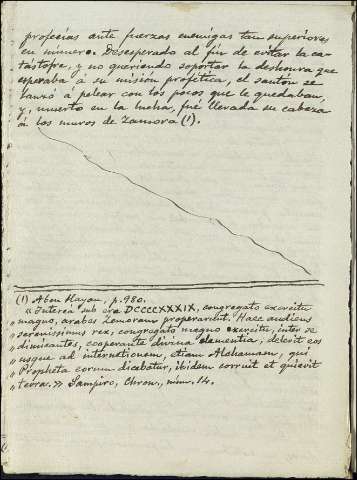 profecias ante fuerzas enemigas tan superiores
en número. Desesperado al fin de evitar la ca-
tástrofe, y no queriendo soportar la deshonra que
esperaba á su misión profética, el santón se
lanzó á pelear con los pocos que le quedaban,
y, muerto en la lucha, fué llevada su cabeza
á los muros de Zamora (1).
(1) Aben Hayan, p. 980.
« Interea sub era DCCCCXXXIX, congregato exercitu
„ magno, arabes Zemoram properarunt. Haec audiens
„ serenissimus rex, congregato magno exercitu, inter se
„ dimicantes, cooperante divina clementia, delevit eos
„ usque ad internetionem, etiam Alchamam, qui
„ Propheta eorum dicebatur, ibidem corruit et quievit
„ terra. » Sampiro, Chron., núm. 14.